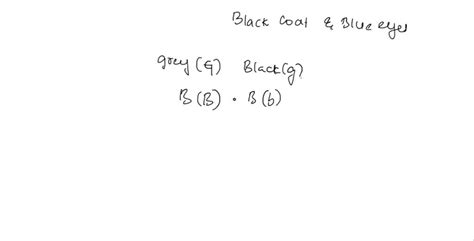 Black coat & Blue eyes
grey (G) Black (g)
B (B) . B (b)